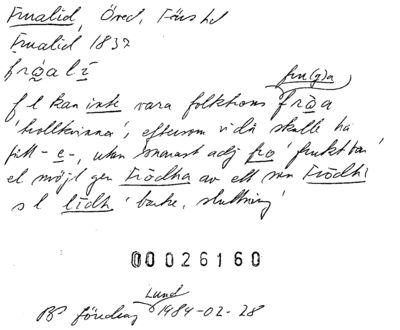 Frualid, Öred, Färs hd
Frualid 1837
fròalí
fru(g)a
f l kan inte vara folketymons fròa
'trollkvinna', eftersom vi då skulle ha
fått -e-, utan snarast adj fro 'fruktbar'
el möjl gen Frödha av ett mn Frödhi
s l lidh 'backe, sluttning'
00026160
Lund
föredrag 1984-02-28